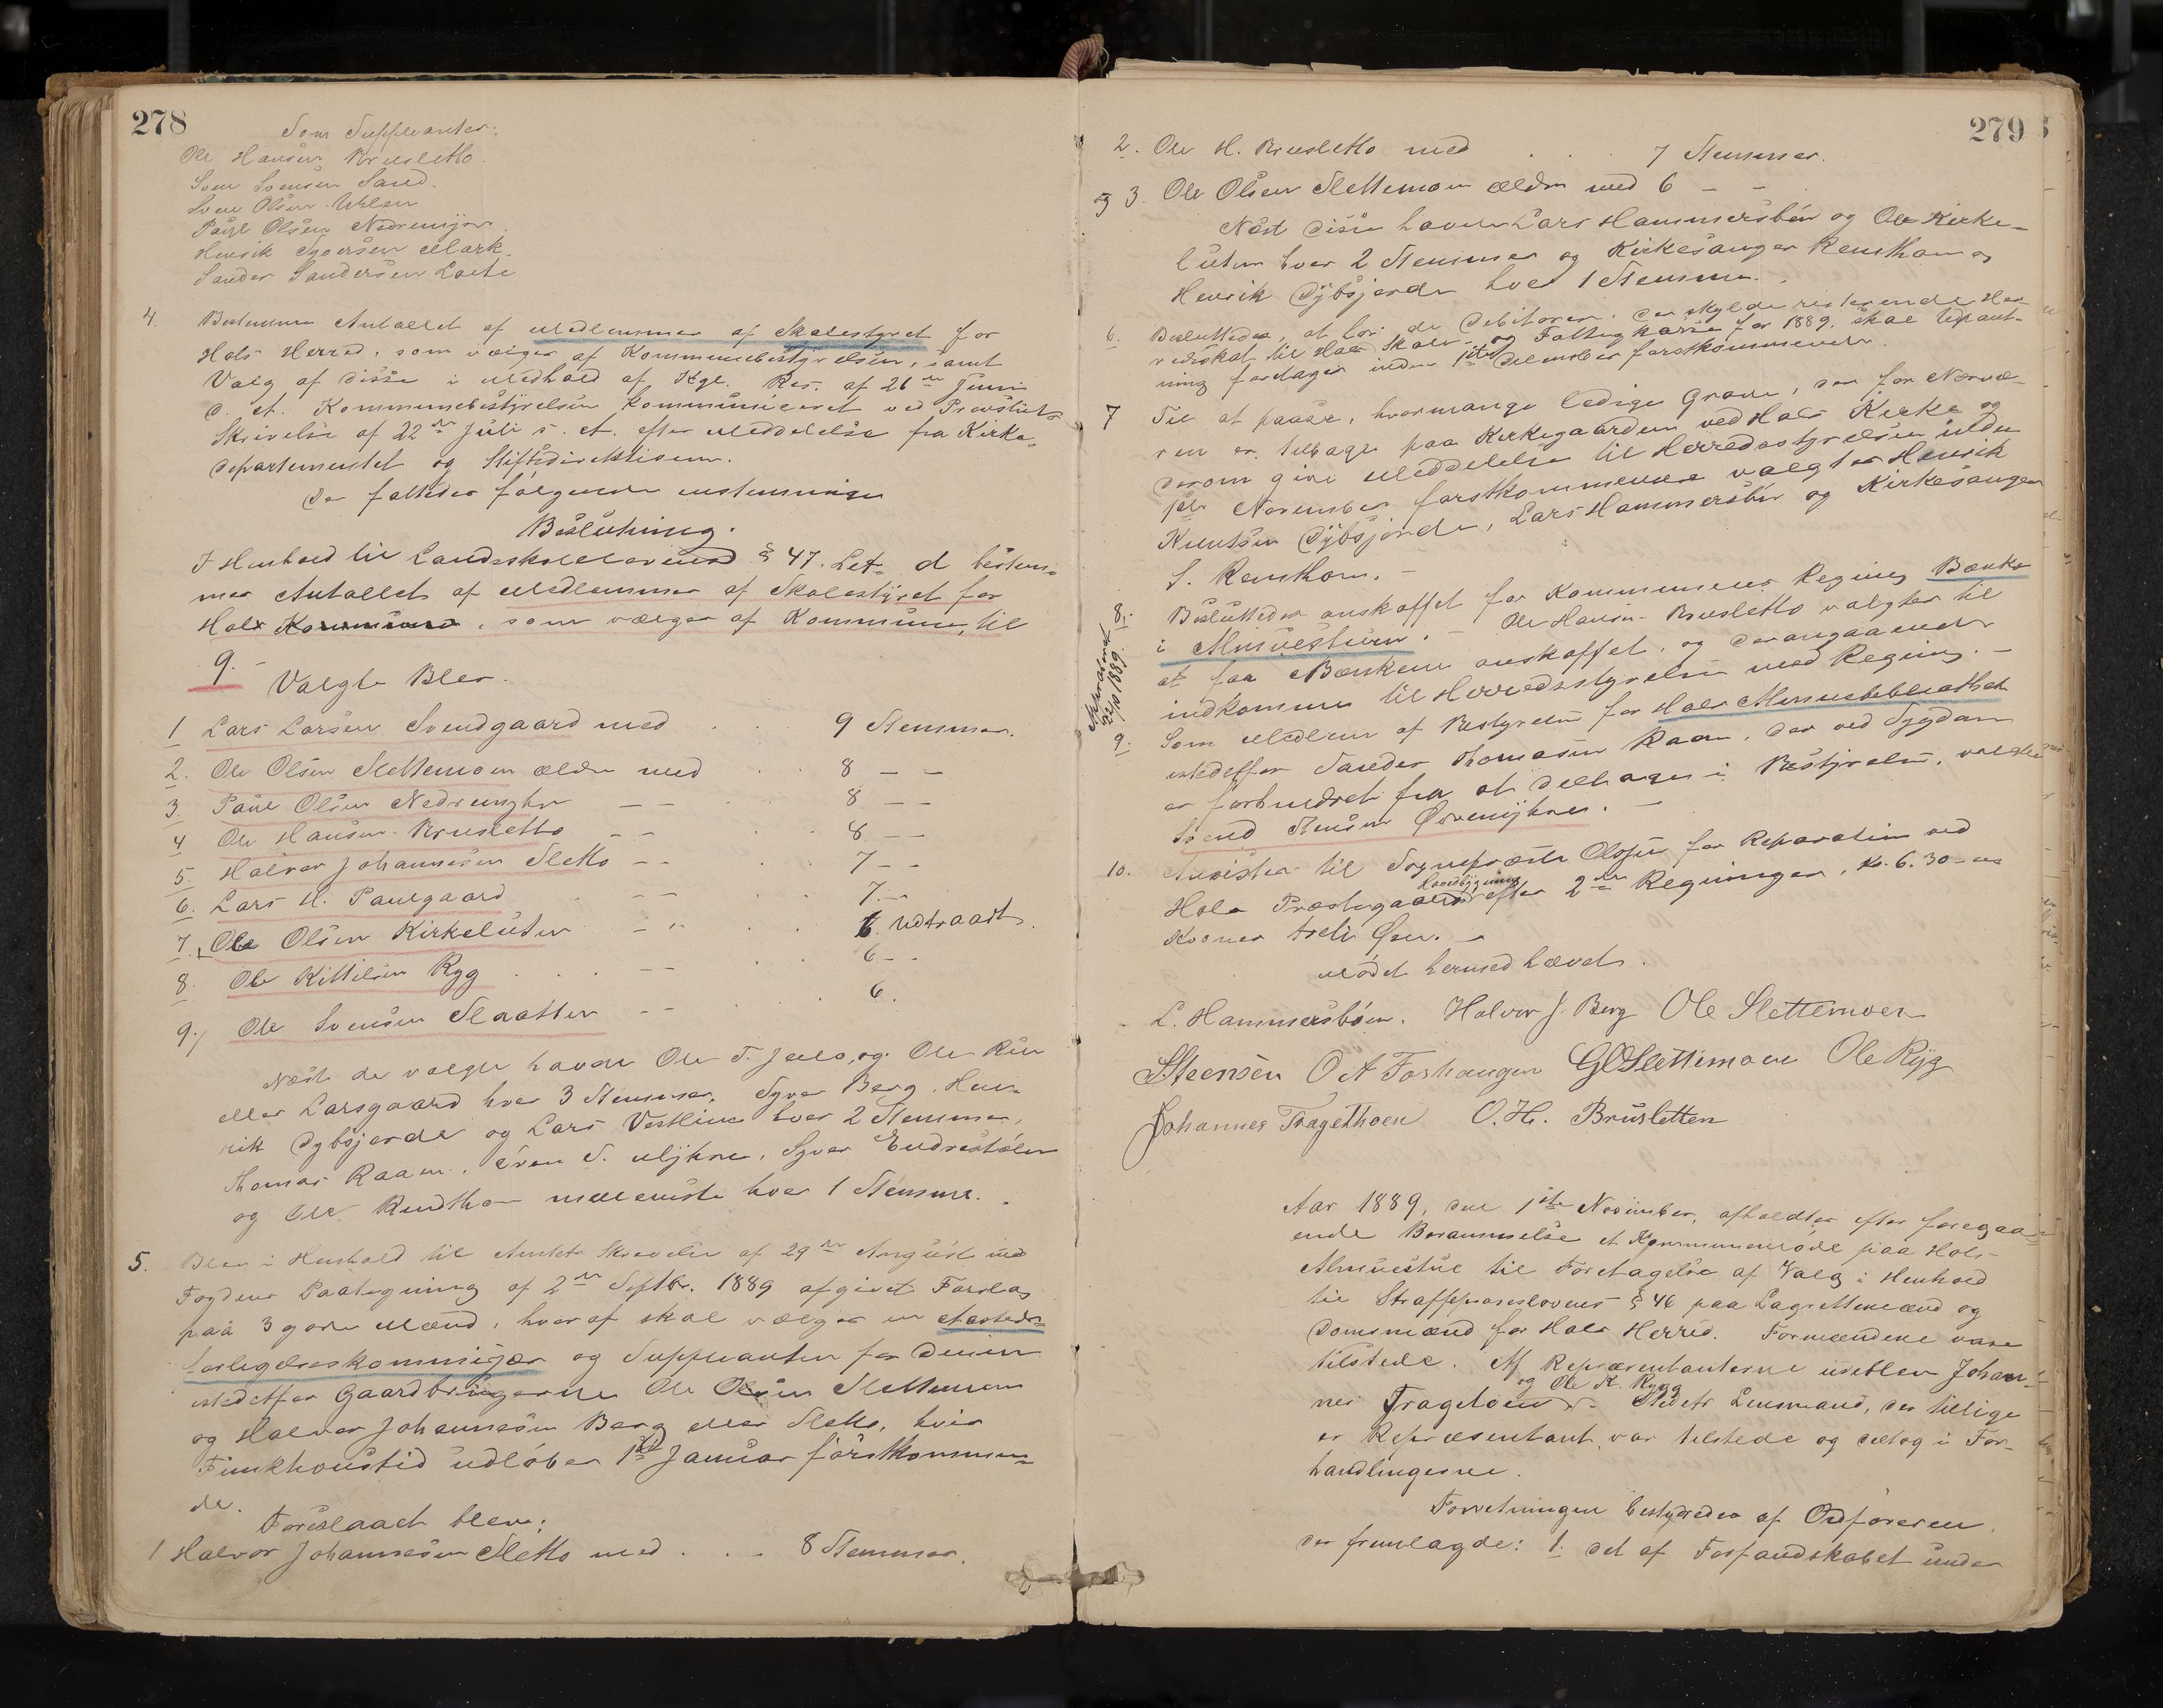 278
Som Suppleanter:
Ole Hansen Brusletto.
Sven Svensen Sand.
Sven Olsen Uhlen
Paul Olsen Nedremyhr
Henrik Syversen Mark.
Sander Sandersen Loete
4. Bestemme Antallet af Medlemmer af Skolestyret for
Hols Herred, som vælges af Kommunebestyrelsen, samt
Valg af disse i Medhold af Kgl. Res. af 26de Juni
d. A. Kommunebestyrelsen kommuniceret ved Provstiets
Skrivelse af 22de Juli s. A. efter Meddelelse fra Kirke-
departementet og Stiftsdirektionen.
Der fattedes følgende enstemmige
Beslutning.
I Henhold til Landsskolelovens § 47. Let. d bestem-
mes Antallet af Medlemmer af Skolestyret for
Hols Kommune, som vælges af Kommunen, til
9.-
Valgte Blev.
1 Lars Larsen Svendgaard med . . 9 Stemmer.
2. Ole Olsen Slettemoen ældre med . . 8 – –
3. Paul Olsen Nedremyhr – – . 8 – –
4 Ole Hansen Brusletto – – . . 8 – –
5. Halvor Johannesen Sletto – – . . 7 – –
6. Lars H. Paulgaard . – – . . 7. –
7. Ole Olsen Kirkeluten – " . . 6. Udtraadt.
8. Ole Kittilsen Ryg . . . – – . . 6 – –
9. Ole Svensen Slaatten – – . . . 6.
Næst de valgte havde Ole T. Jello, og Ole Ruu
eller Larsgaard hver 3 Stemmer, Syver Berg, Hen-
rik Dybsjorde og Lars Vestlien hver 2 Stemmer,
Thomas Raaen, Sven S. Myhre, Syver Endrestølen
og Ole Rudthon nævneviste hver 1 Stemme.
5. Blev i Henhold til Amtets Skrivelse af 29de August med
Fogdens Paategning af 2den Septbr. 1889 afgivet Forslag
paa 3 gode Mænd, hvoraf skal vælges en Aasteds-
forligelseskommissær og Suppleanter for denne
istedetfor Gaardbrugerne Ole Olsen Slettemoen
og Halvor Johannesen Berg eller Sletto, hvis
Funkhonstid udløber 1ste Januar førstkommen-
de.
Foreslaaet blev:
1 Halvor Johannesen Sletto med . . . 8 Stemmer.
279
2. Ole H. Brusletto med . . . 7 Stemmer.
3. Ole Olsen Slettemoen ældre med 6 – –
Næst disse havde Lars Hammersbøn og Ole Kirke-
luten hver 2 Stemmer og Kirkesanger Rensthon og
Henrik Dybsjorde hver 1 Stemme.
6. Besluttedes, at hos de Debitorer, der skylde resterende Her-
redsskat til Hols Skole- og Fattigkasse for 1889, skal Udpant-
ning foretages inden 1ste December førstkommende.
7 Til at paase, hvormange ledige Grave, der for Nærvæ-
ren er tilbage paa Kirkegaarden ved Hols Kirke og
derom give Meddelelse til Herredsstyrelsen inden
1ste November førstkommende valgtes Henrik
Knutsen Dybsjorde, Lars Hammersbøn og Kirkesanger
S. Rensthon. –
8. Besluttedes anskaffet for Kommunens Regning Bænke
i Almuestuen. – Ole Hansen Brusletto valgtes til
at faa Bænkene anskaffet, og derangaaende
indkomme til Herredsstyrelsen med Regning. –
22/10 1889.
9. Som Medlem af Bestyrelsen for Hols Almuebibliothek
istedetfor Sander Thomesen Raaen, der ved Sygdom
er forhindret fra at deltage i Bestyrelsen, valgtes
Svend Stensen Øvremyhren. –
10. Anvistes til Sogneprest Olsen for Reparation ved
Hols Præstegaards Hovedbygning efter 2de Regninger, Kr. 6.30 – sex
Kroner treti Øre. –
Mødet hermed hævet.
L. Hammersbøen. Halvor J. Berg Ole Slettemoen
S Steensen O A Foshaugen G O Slettemoen Ole Ryg
Johannes Tragethoen O. H. Brusletten
Aar 1889, den 1ste November, afholdtes efter foregaa-
ende Berammelse et Kommunemøde paa Hols
Almuestue til Foretagelse af Valg i Henhold
til Straffeproceslovens § 46 paa Lagrettemænd og
Domsmænd for Hols Herred. Formændene vare
tilstede. Af Repræsentanterne udeblev Johan-
nes Tragetoen og Ole K. Rygg. Stedets Lensmand, der tillige
er Repræsentant, var tilstede og deltog i For-
handlingerne.
Forretningen bestyredes af Ordføreren,
der fremlagde: 1. det af Forfandskabet under